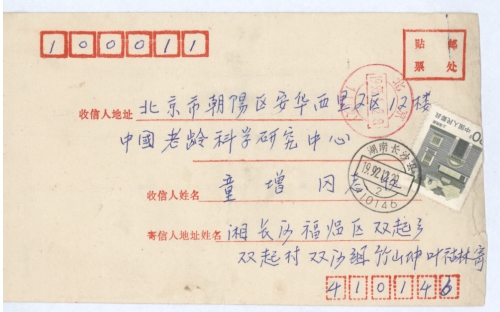 100011
贴 邮
票 处
收信人地址 北京市朝陽区安华西里又区12楼
中國老龄科学研究中心
湖南长沙县
19.92.12
2
410146
收信人姓名 童增 同志 收
寄信人地址姓名 湘长沙福临区双起乡
双起村双沙组竹山坤叶祜林寄
410146
中国人民邮政